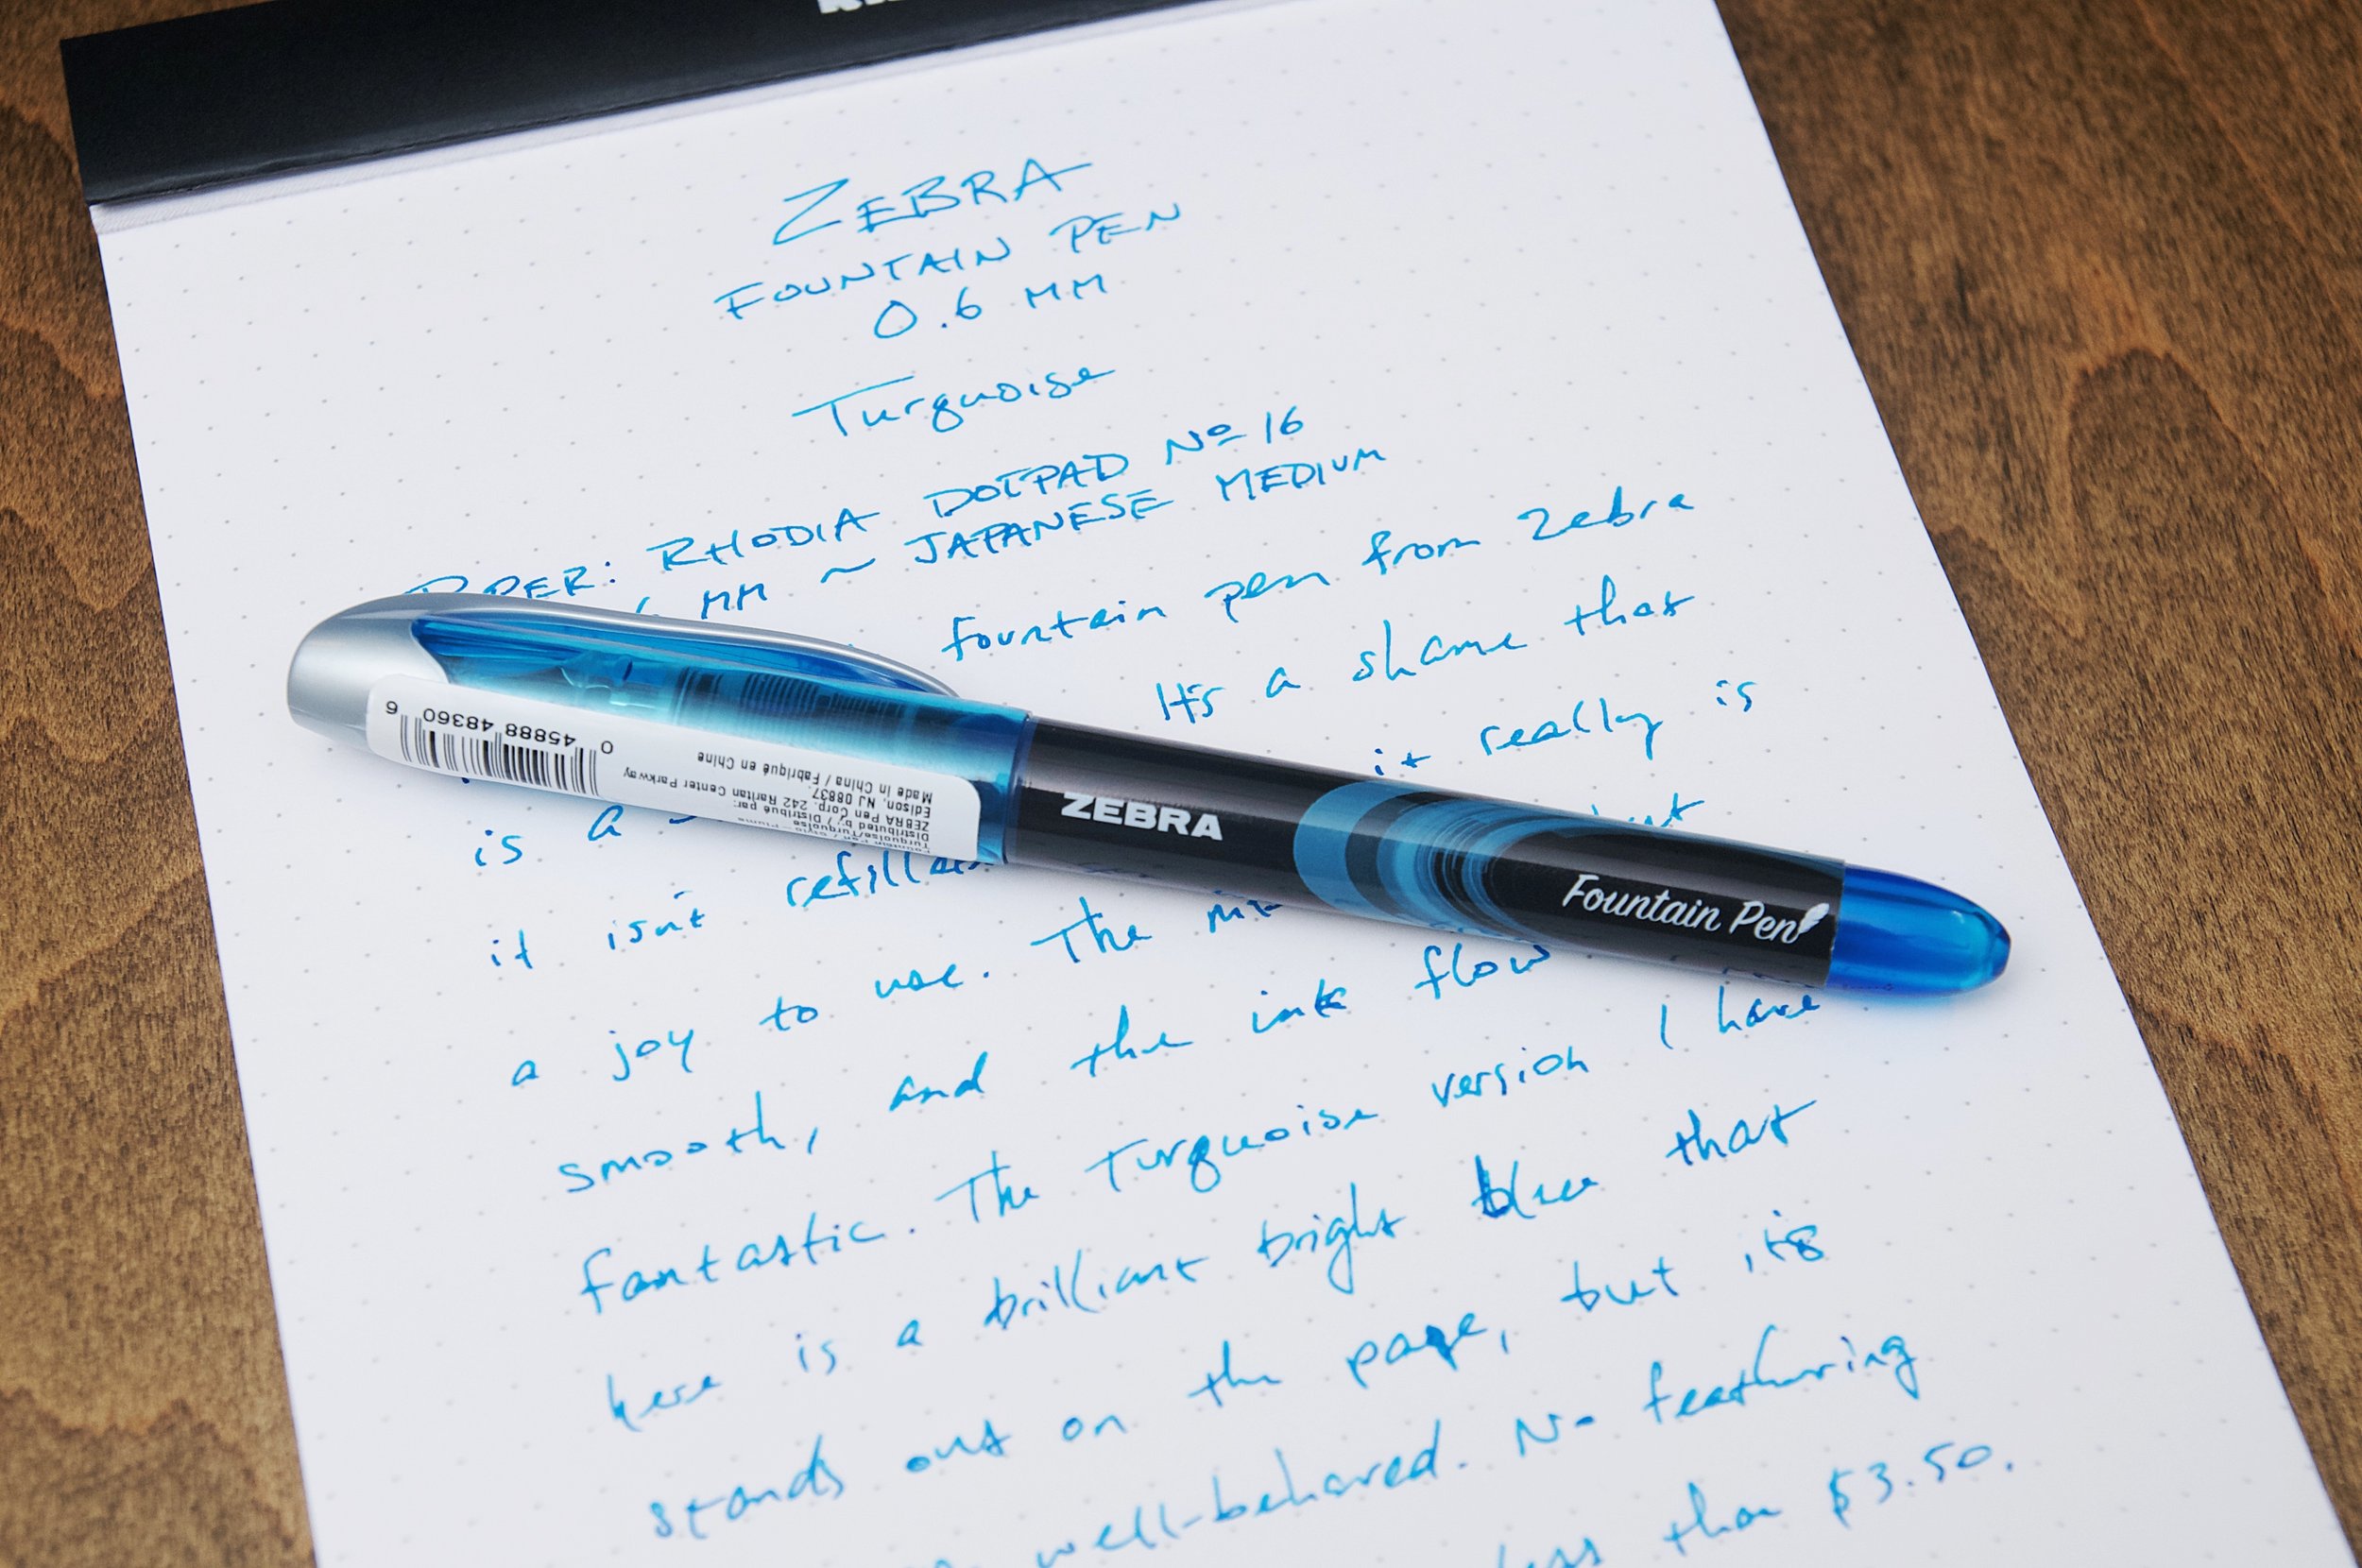 ZEBRA
FOUNTAIN PEN
0.6 MM
Turquoise
PAPER: RHODIA DOTPAD Nº 16
MM ~ JAPANESE MEDIUM
fountain pen from Zebra
It's a shame that
it really is
is a
it isn't
a joy to use. The
smooth, and the ink flow
fantastic. The Turquoise version I have
here is a brilliant bright blue that
stands out on the page, but it's
well-behaved. No feathering
less than $3.50.
ZEBRA
Fountain Pen
0 45888 48360 6
Turquoise
Distributed by / Distribué par:
ZEBRA Pen Corp. 242 Raritan Center Parkway
Edison, NJ 08837.
Made in China / Fabriqué en Chine